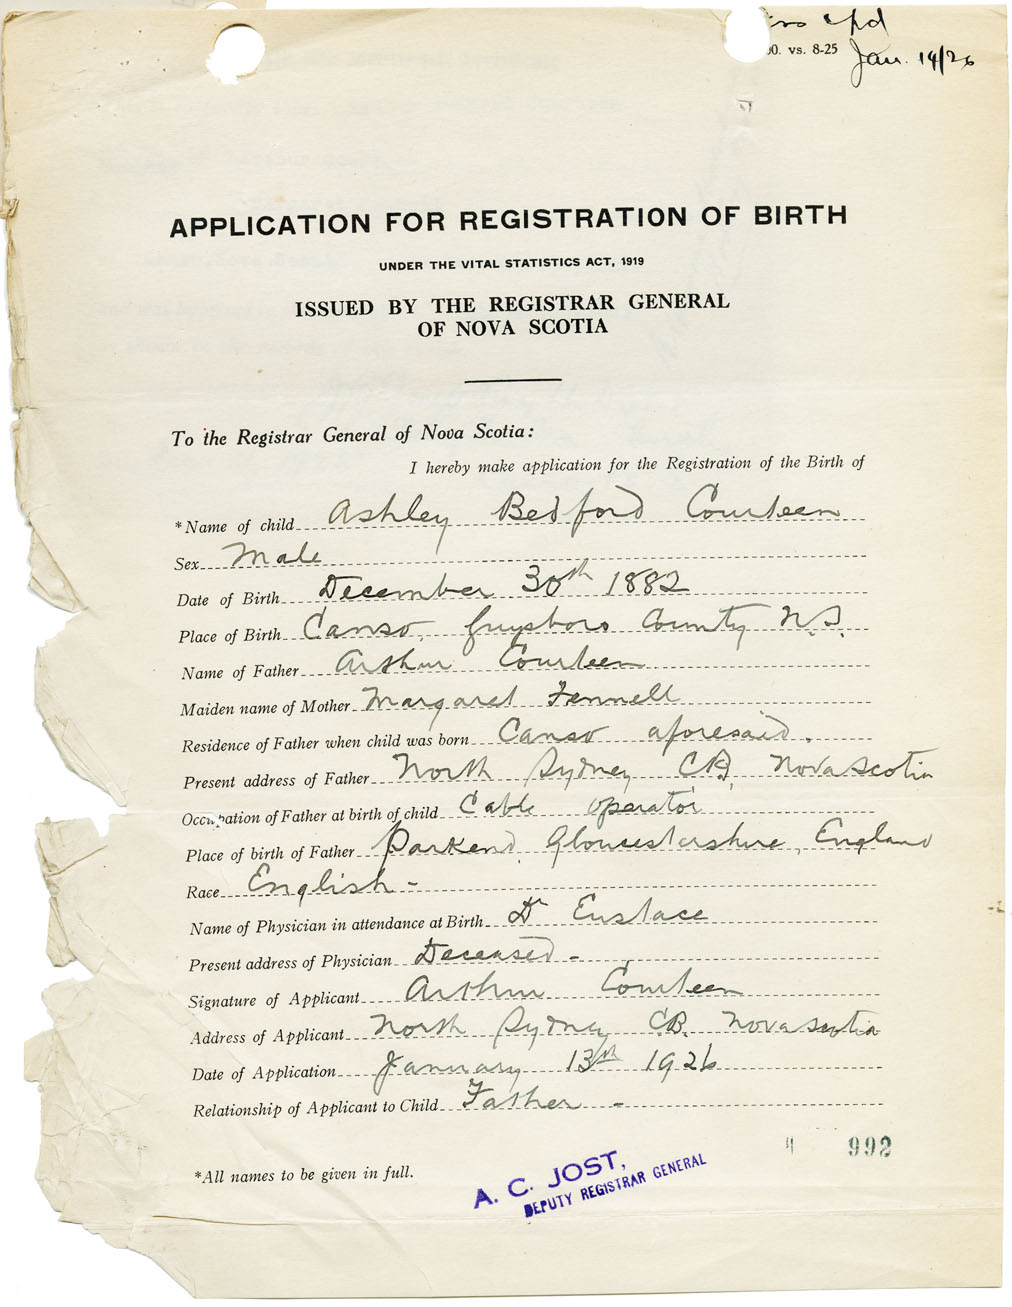 apd
00. vs. 8-25
Jan. 14/26
APPLICATION FOR REGISTRATION OF BIRTH
UNDER THE VITAL STATISTICS ACT, 1919
ISSUED BY THE REGISTRAR GENERAL
OF NOVA SCOTIA
To the Registrar General of Nova Scotia:
I hereby make application for the Registration of the Birth of
*Name of child Ashley Bedford Courteen
Sex Male
Date of Birth December 30th 1882
Place of Birth Canso, Guysboro County N.S.
Name of Father Arthur Courteen
Maiden name of Mother Margaret Fennell
Residence of Father when child was born Canso aforesaid.
Present address of Father North Sydney CB, Nova Scotia
Occupation of Father at birth of child Cable operator
Place of birth of Father Parkend, Gloucestershire, England
Race English -
Name of Physician in attendance at Birth Dr Eustace
Present address of Physician Deceased -
Signature of Applicant Arthur Courteen
Address of Applicant North Sydney CB. Nova Scotia
Date of Application January 13th 1926
Relationship of Applicant to Child Father -
992
*All names to be given in full.
A. C. JOST,
DEPUTY REGISTRAR GENERAL